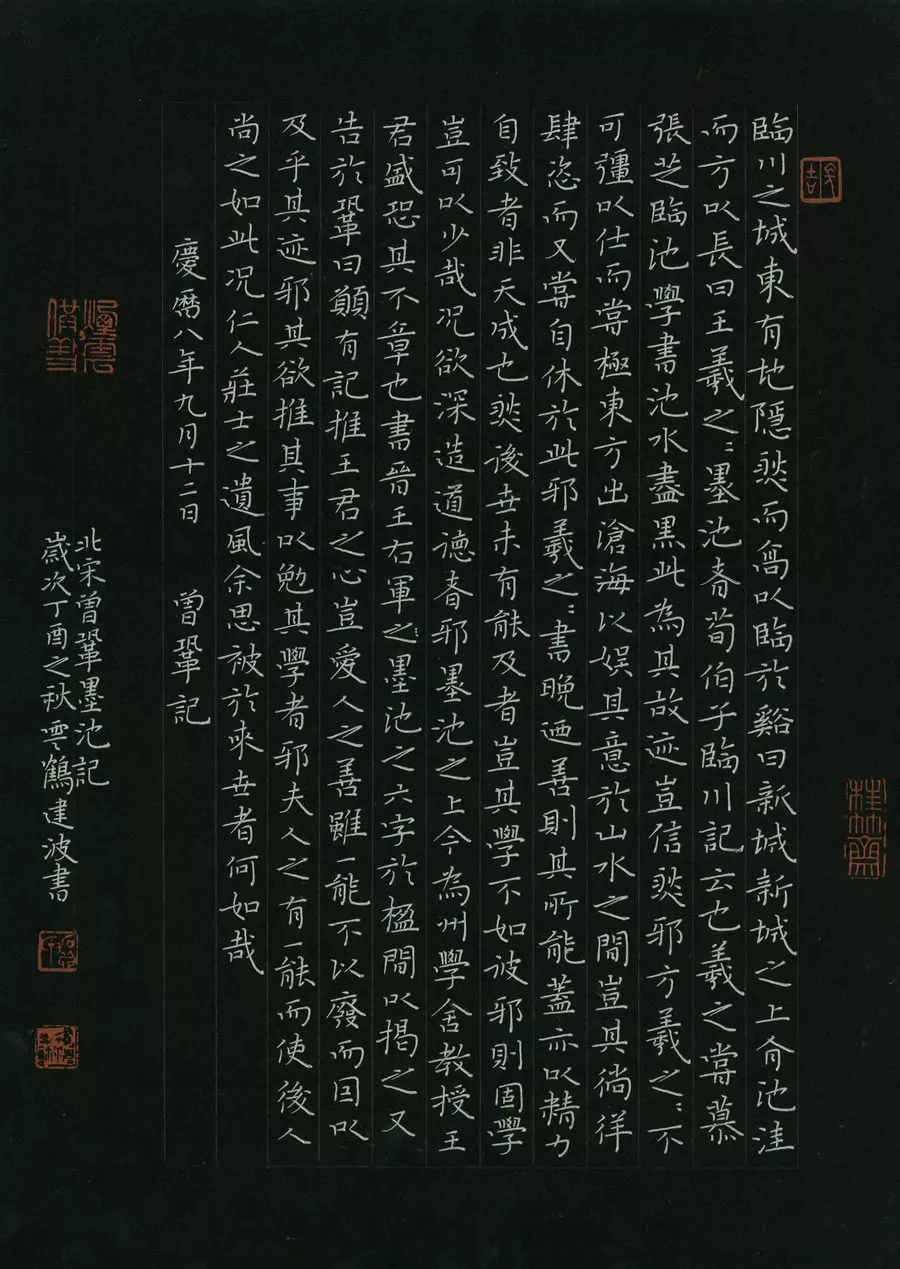 臨川之城東有地隱然而高以臨於谿曰新城新城之上有池洼
而方以長曰王羲之:墨池者荀伯子臨川記云也羲之嘗慕
張芝臨池學書池水盡黑此為其故迹豈信然邪方羲之:不
可彊以仕而嘗極東方出滄海以娛其意於山水之間豈其徜徉
肆恣而又嘗自休於此邪羲之:書晚迺善則其所能蓋亦以精力
自致者非天成也然後世未有能及者豈其學不如彼邪則固學
豈可以少哉况欲深造道德者邪墨池之上今為州學舍教授王
君盛恐其不章也書晉王右軍之墨池之六字於楹間以揭之又
告於鞏曰願有記推王君之心豈愛人之善雖一能不以廢而因以
及乎其迹邪其欲推其事以勉其學者邪夫人之有一能而使後人
尚之如此况仁人莊士之遺風余思被於來世者何如哉
慶曆八年九月十二日 曾鞏記
北宋曾鞏墨池記
歲次丁酉之秋雲鶴建波書